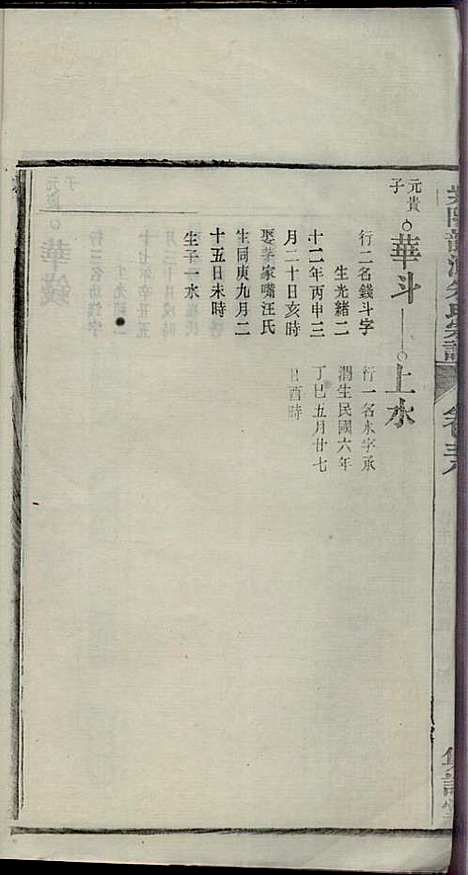 元貴
子
華斗
上水
行二名錢斗字
生光緒二
十二年丙申三
月二十日亥時
娶茅家嘴汪氏
生同庚九月二
十五日未時
生子一水
行一名水字承
潤生民國六年
丁巳五月廿七
日酉時